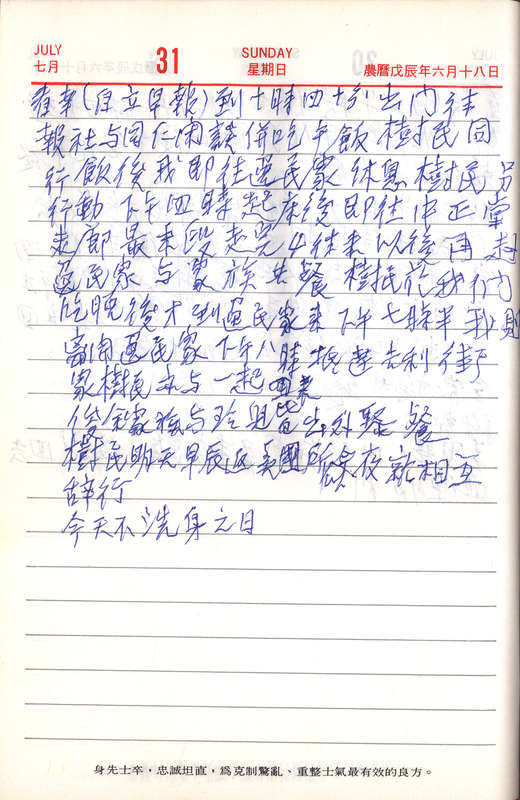 JULY 31 SUNDAY
七月 星期日 農曆戊辰年六月十八日
看報(自立早報)到十時四十分出門往
報社与同仁閑談併吃午飯樹民同
行飯後我即往逸民家休息樹民另
行動下午四時起床後即往中正堂
走廊最末段走完4往来以後再赴
逸民家与家族共餐樹民在我们
吃晚後才到逸民家来下午七時半我則
離開逸民家下午八時抵達吉利街
家樹民亦与一起回来
後全家族与玲 吉利聚餐
樹民明天早辰返美國所以今夜就相互
辞行
今天不洗身之日
身先士卒,忠誠坦直,爲克制驚亂、重整士氣最有效的良方。